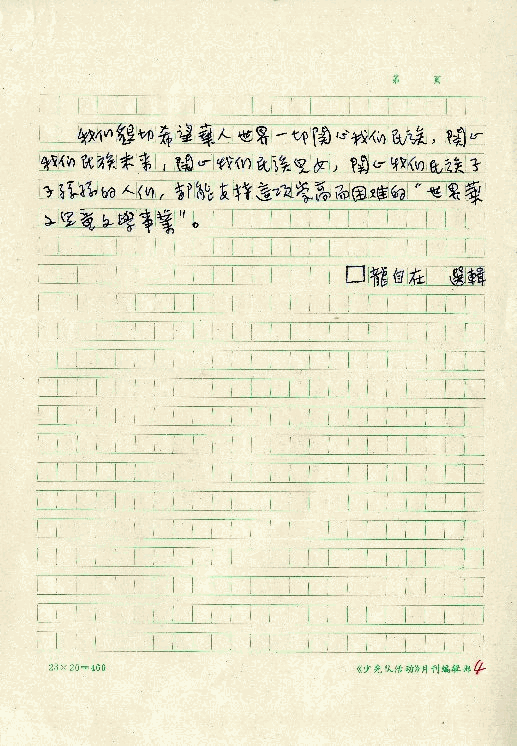 第 页
我们緄切希望華人世界一切関心我们民族，関心
我们民族未来，関心我们民族児女，関心我们民族子
子孫孫的人们，都能支持這項崇高而困难的“世界華
文児童文學事業”。
□龍自在 選輯
23×20=460
《少先队活动》月刊编辑部 4